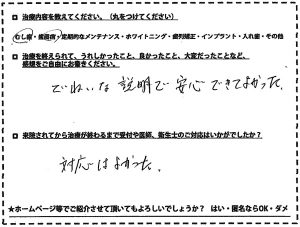 □ 治療内容を教えてください。（丸をつけてください）
むし歯・歯周病・定期的なメンテナンス・ホワイトニング・歯列矯正・インプラント・入れ歯・その他
□ 治療を終えられて、うれしかったこと、良かったこと、大変だったことなど、
感想をご自由にお書きください。
ていねいな説明で安心できてよかった。
□ 来院されてから治療が終わるまで受付や医師、衛生士のご対応はいかがでしたか？
対応はよかった。
★ホームページ等でご紹介させて頂いてもよろしいでしょうか？ はい・匿名ならOK・ダメ